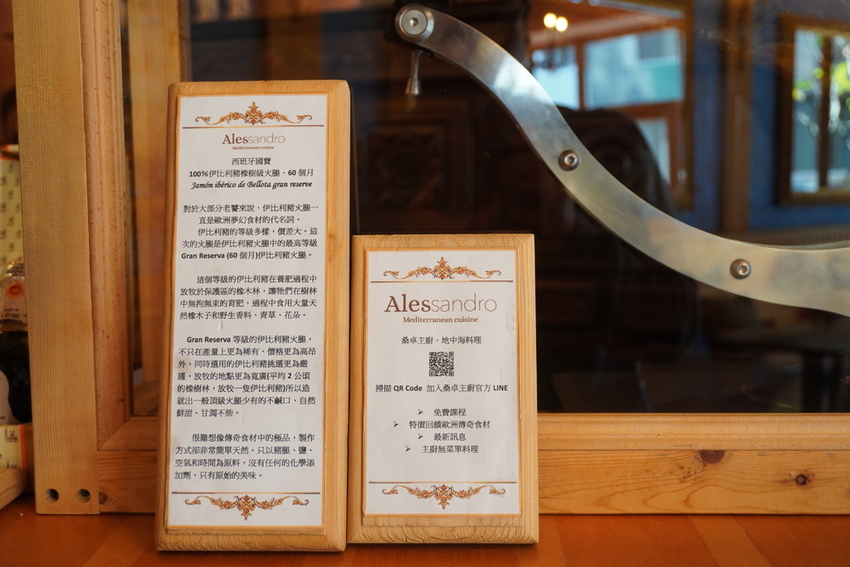 Alessandro
Mediterranean cuisine
西班牙國寶
100%伊比利豬橡樹級火腿，60 個月
Jamón ibérico de Bellota gran reserve
對於大部分老饕來說，伊比利豬火腿一
直是歐洲夢幻食材的代名詞。
伊比利豬的等級多樣，價差大。這
次的火腿是伊比利豬火腿中的最高等級
Gran Reserva (60 個月)伊比利豬火腿。
這個等級的伊比利豬在養肥過程中
放牧於保護區的橡木林，讓牠們在樹林
中無拘無束的育肥，過程中食用大量天
然橡木子和野生香料、青草、花朵。
Gran Reserva 等級的伊比利豬火腿，
不只在產量上更為稀有、價格更為高昂
外，同時選用的伊比利豬挑選更為嚴
謹，放牧的地點更為寬廣(平均 2 公頃
的橡樹林，放牧一隻伊比利豬)所以造
就出一般頂級火腿少有的不鹹口、自然
鮮甜，甘潤不柴。
很難想像傳奇食材中的極品，製作
方式卻非常簡單天然，只以豬腿、鹽、
空氣和時間為原料，沒有任何的化學添
加劑，只有原始的美味。
Alessandro
Mediterranean cuisine
桑卓主廚．地中海料理
掃描 QR Code 加入桑卓主廚官方 LINE
➢ 免費課程
➢ 特價回饋歐洲傳奇食材
➢ 最新訊息
➢ 主廚無菜單料理